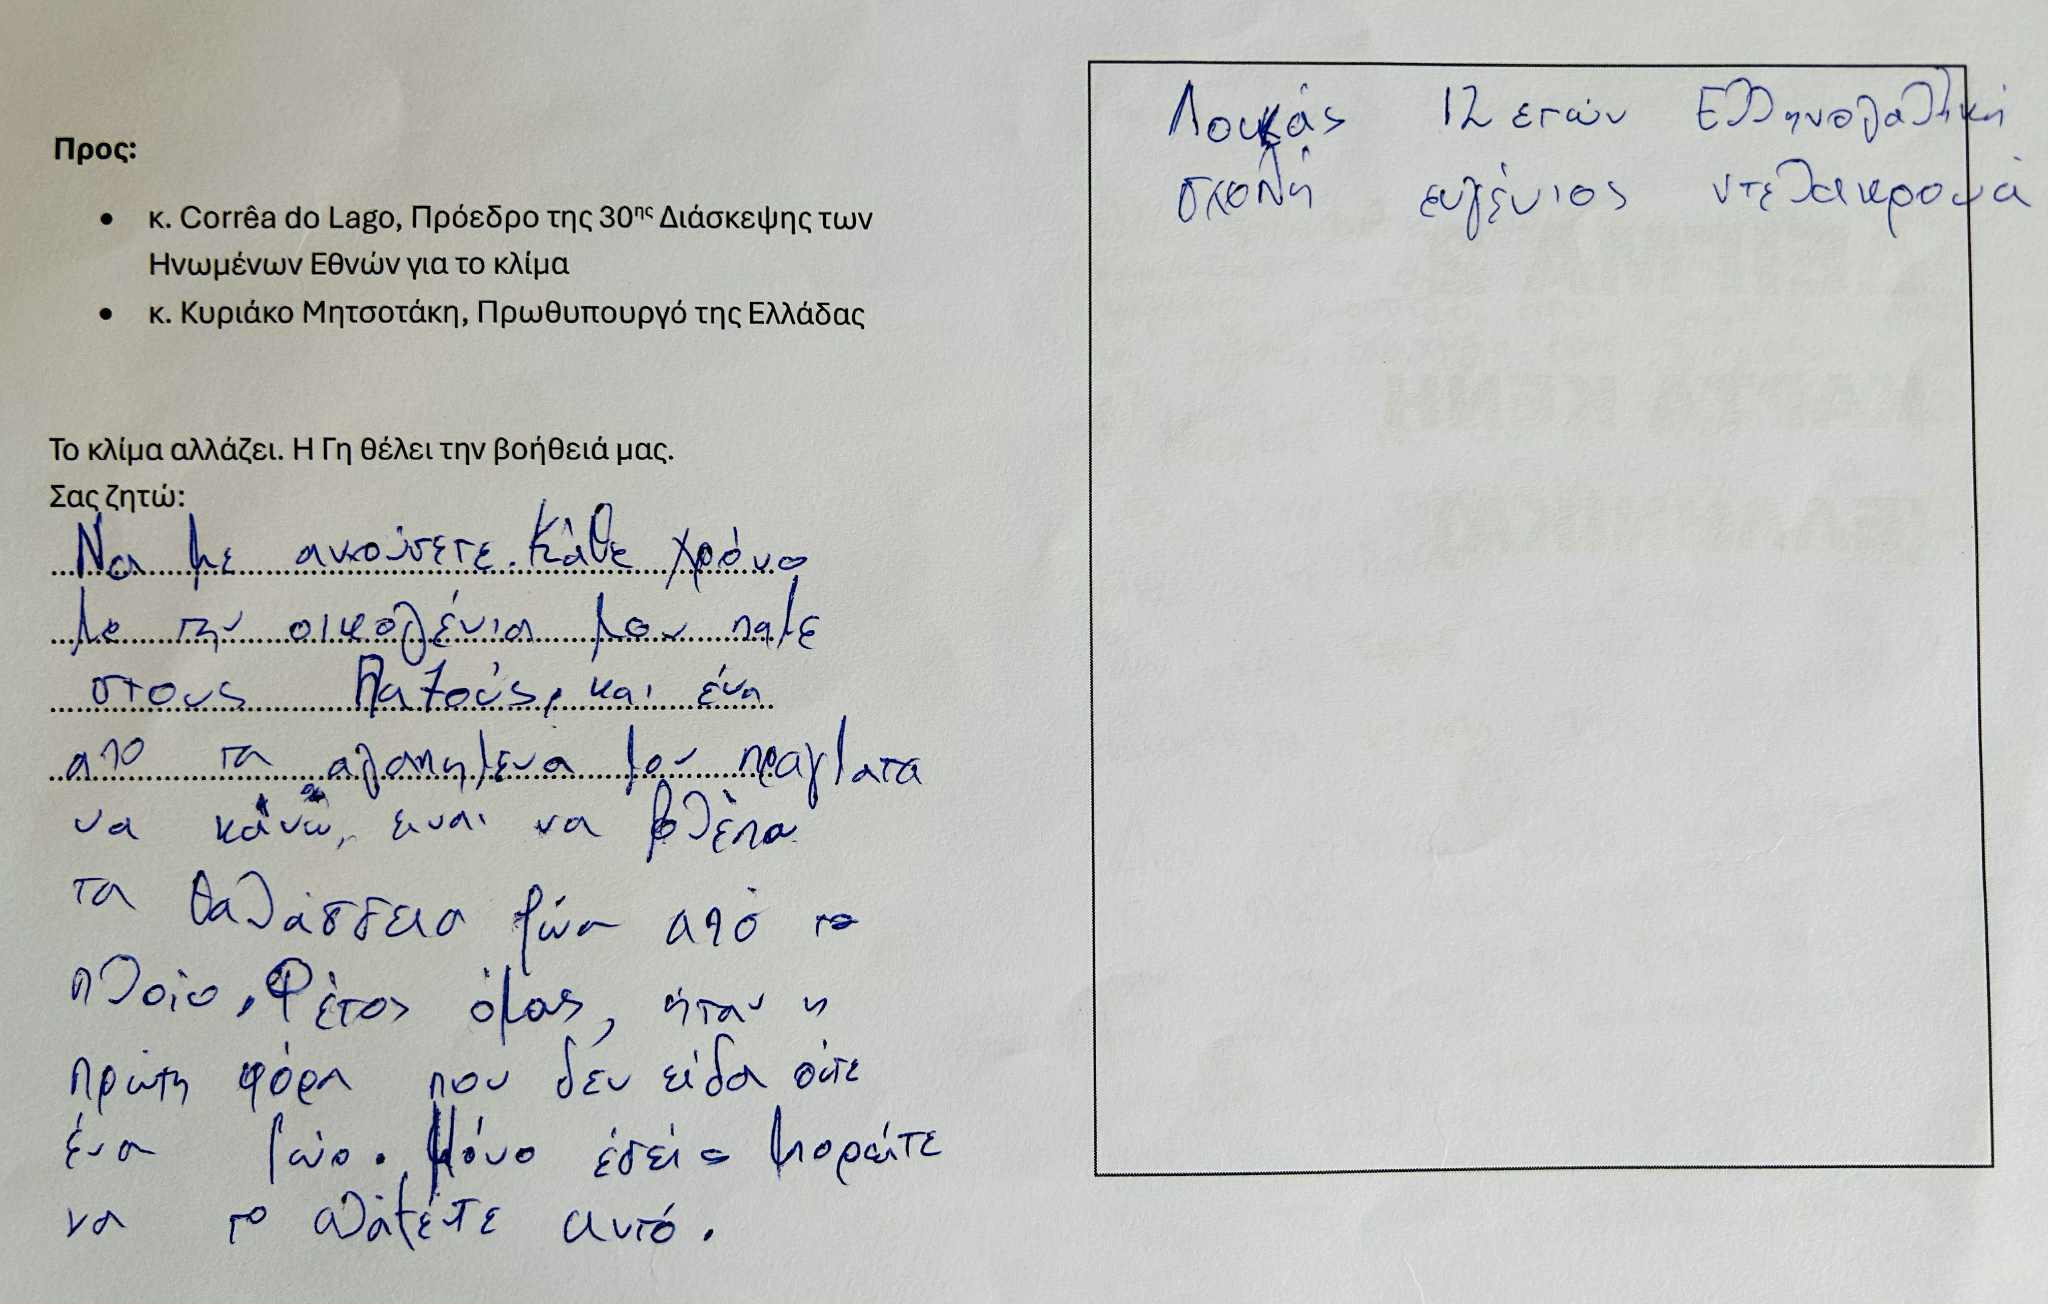 Προς:
• κ. Corrêa do Lago, Πρόεδρο της 30ης Διάσκεψης των
Ηνωμένων Εθνών για το κλίμα
• κ. Κυριάκο Μητσοτάκη, Πρωθυπουργό της Ελλάδας
Το κλίμα αλλάζει. Η Γη θέλει την βοήθειά μας.
Σας ζητώ:
Να με ακούσετε. Κάθε χρόνο
με την οικογένια μου παμε
στους Παξούς, και ένα
απο τα αγαπημένα μου πραγματα
να κάνω, ειναι να βλέπω
τα θαλάσσεια ζώα από το
πλοίο. Φέτος όμως, ήταν η
πρώτη φόρα που δέν είδα ούτε
ένα ζώο. Μόνο έσείς μπορείτε
να το αλάξετε αυτό.
Λουκάς 12 ετών Ελληνογαλλική
σχολή ευγένιος ντελακρουά